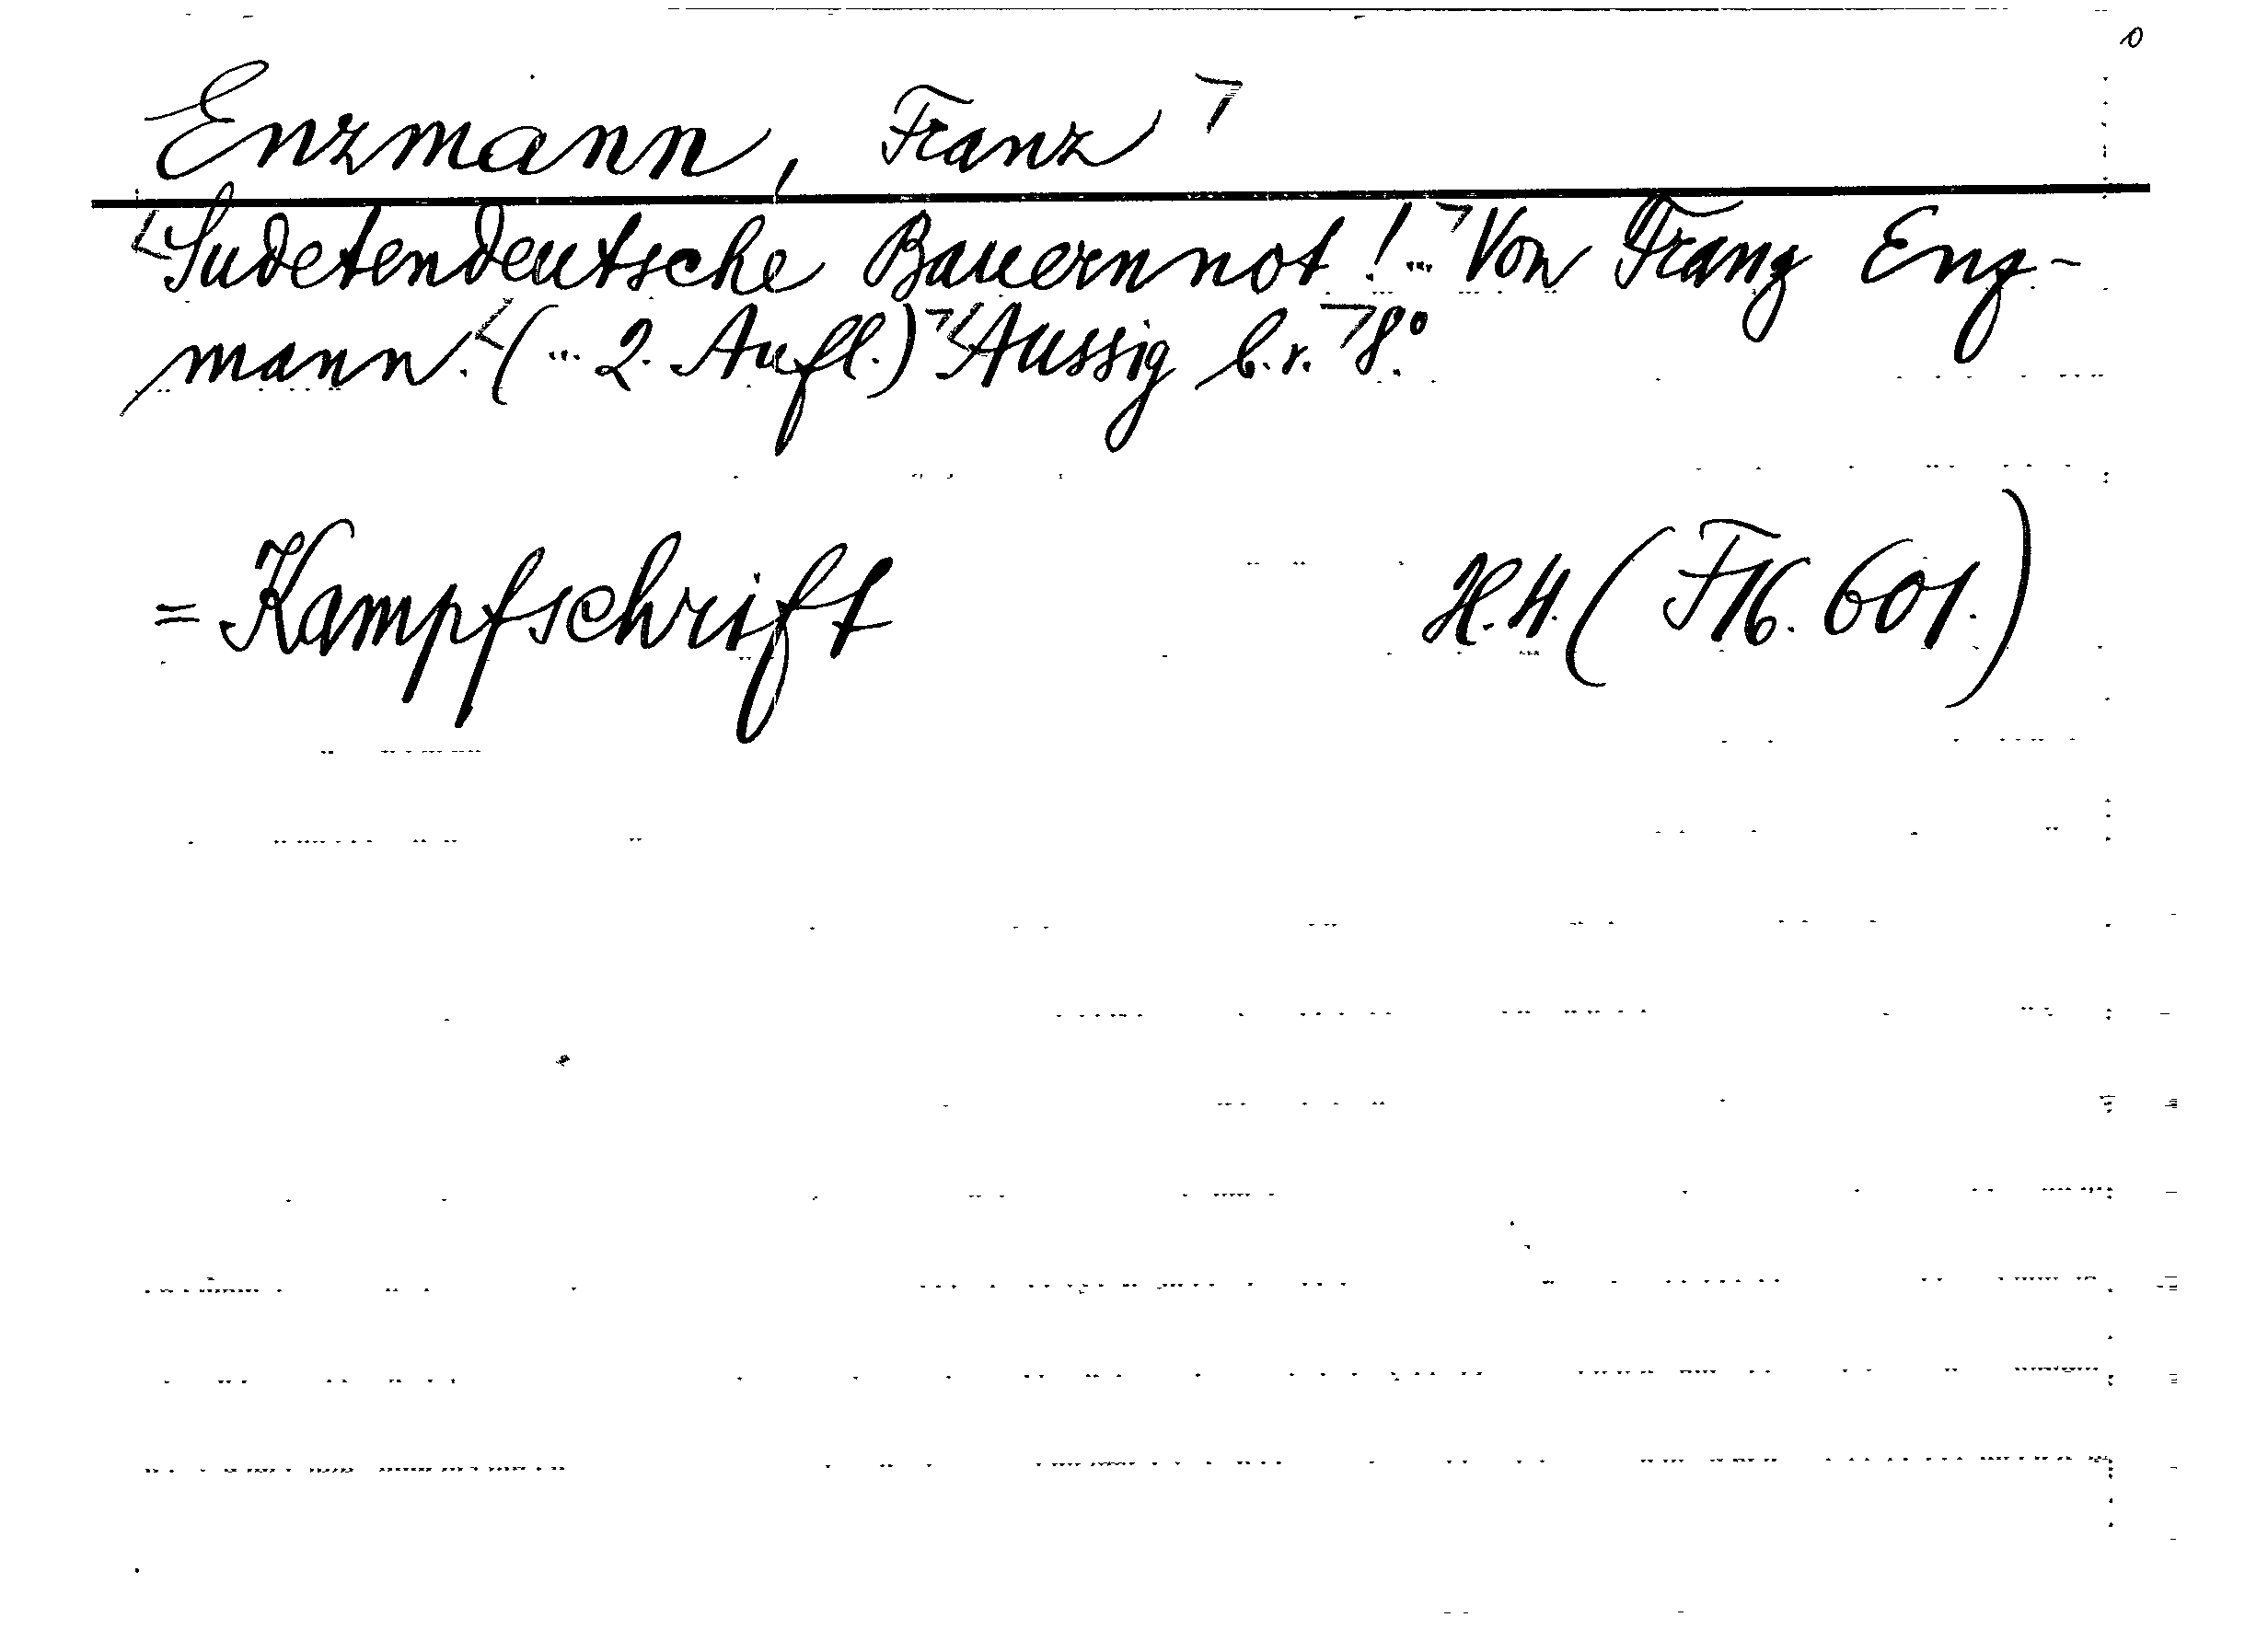 Enzmann, Franz
Sudetendeutsche Bauernnot!... Von Franz Enz-
mann. (... 2. Aufl.) Aussig b.r. 8°.
= Kampfschrift H.H. (F16. 601.)